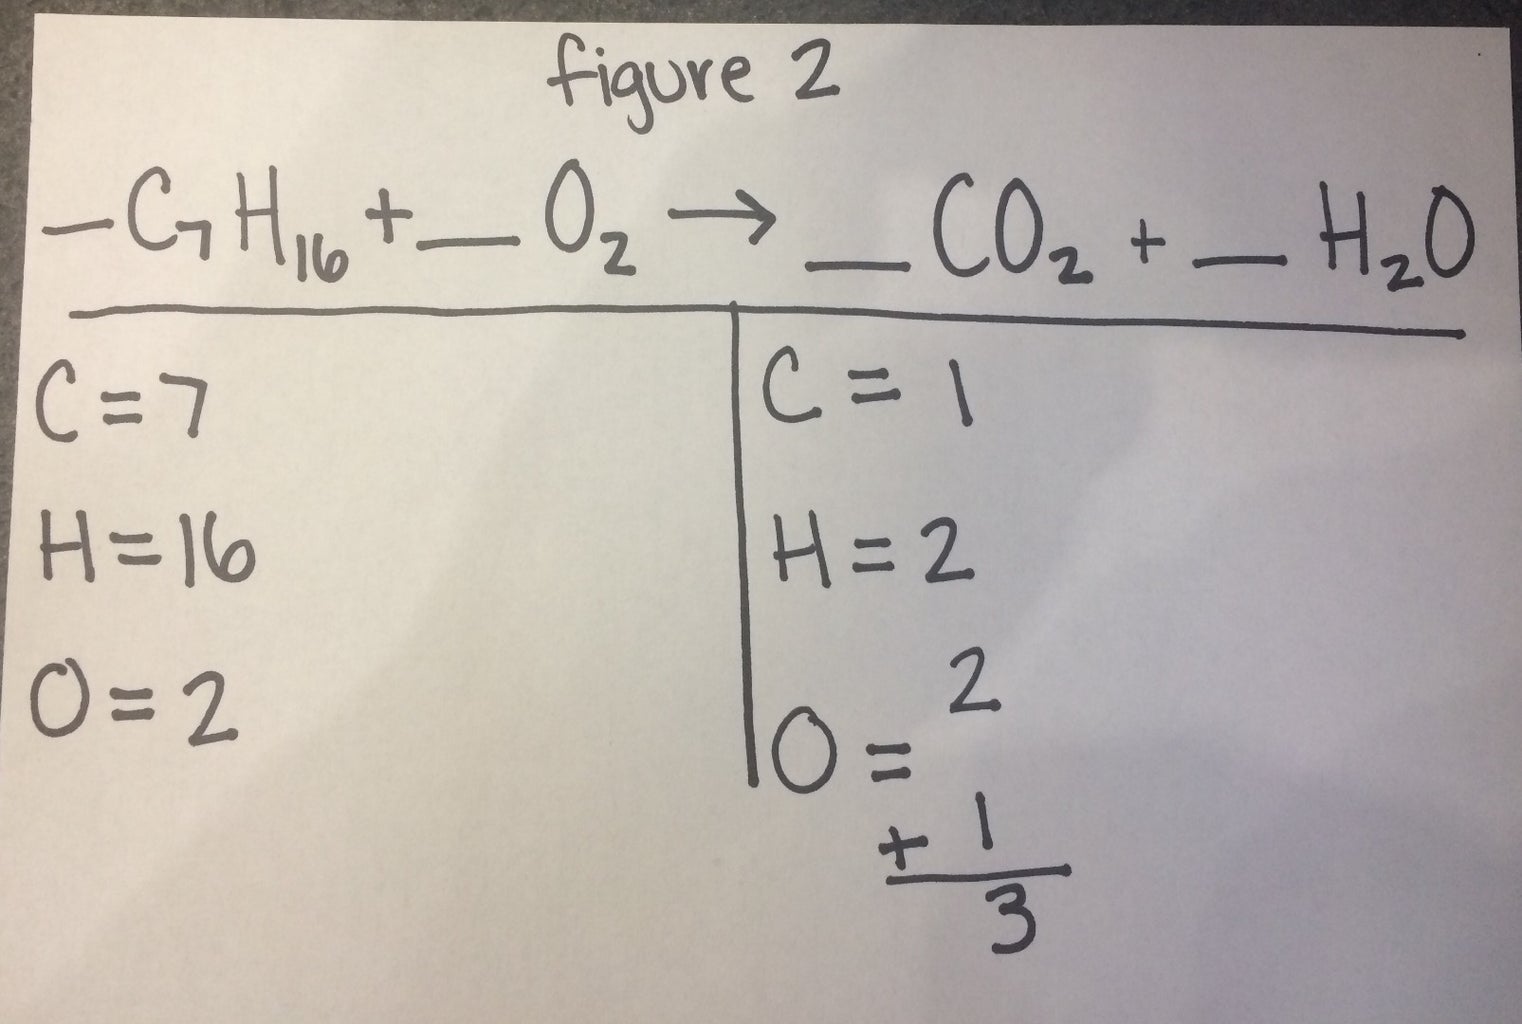 figure 2
_ C₇H₁₆ + __ O₂ → __ CO₂ + __ H₂O
C = 7
H = 16
O = 2
C = 1
H = 2
O = 2
+ 1
3